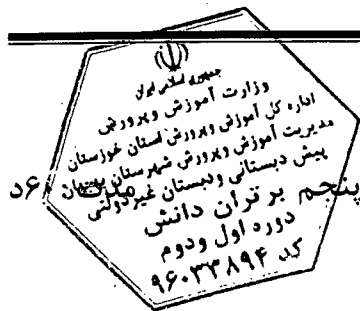 جمهوری اسلامی ایران
وزارت آموزش وپرورش
اداره کل آموزش وپرورش استان خوزستان
مدیریت آموزش وپرورش شهرستان بهبهان
پیش دبستانی ودبستان غیردولتی
پنجم
برتران دانش
دوره اول ودوم
کد ۹۶۰۳۳۸۹۴